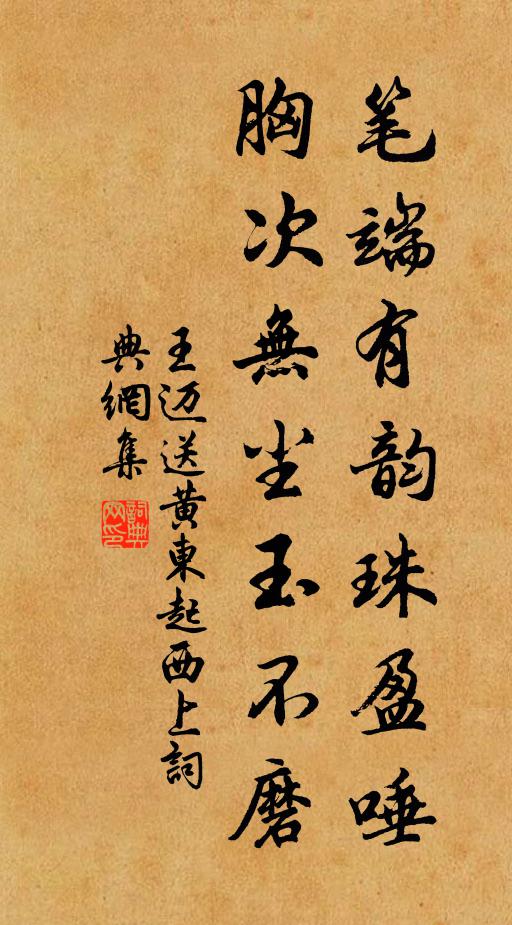 笔端有韵珠盈唾
胸次無尘玉不磨
王迈送黄東起西上詞
典網集
詞典
网印